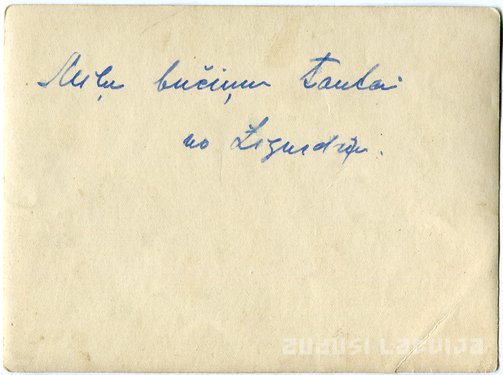 Mīļu bučiņu Tantei
no Zigurdiņa.
ZUDUSI LATVIJA